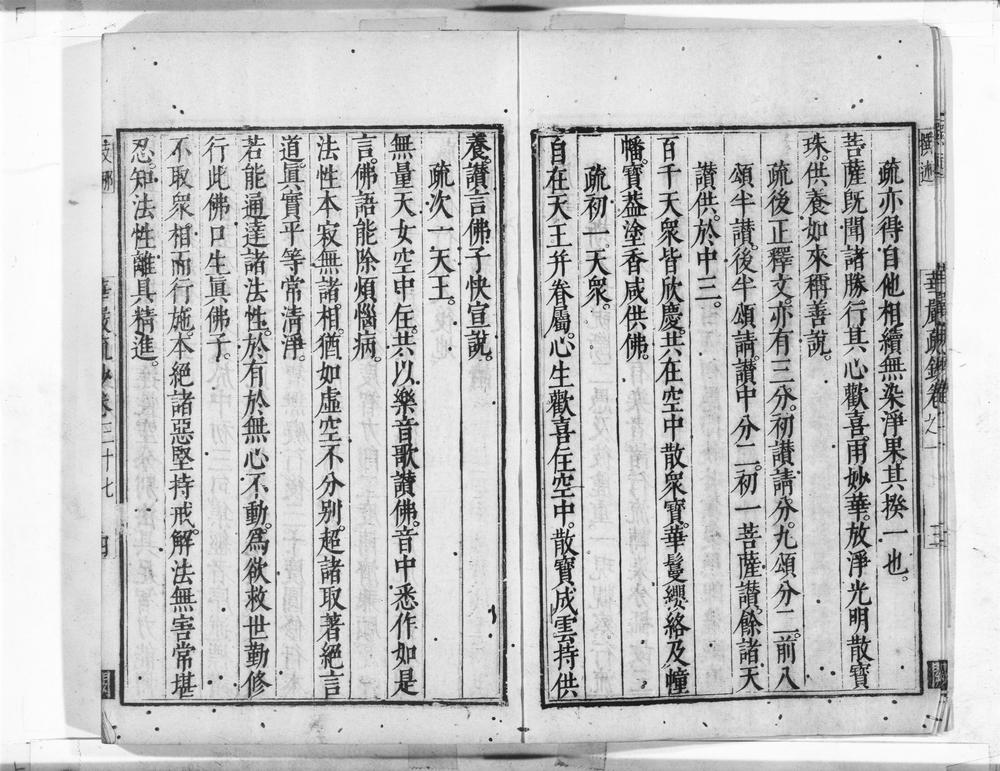 疏亦得自他相續無染淨果其揆一也。
菩薩旣聞諸勝行其心歡喜雨妙華。放淨光明散寶
珠。供養如來稱善說。
疏後正釋文。亦有三分。初讚請分。九頌分二。前八
頌半讚。後半頌請。讚中分二。初一菩薩讚。餘諸天
讚供。於中三。
百千天眾皆欣慶。共在空中散眾寶。華鬘纓絡及幢
幡。寶蓋塗香咸供佛。
疏初一。天眾。
自在天王幷眷屬。心生歡喜住空中。散寶成雲持供
養。讚言佛子快宣說。
疏次一天王。
無量天女空中住。共以樂音歌讚佛。音中悉作如是
言。佛語能除煩惱病。
法性本寂無諸相。猶如虛空不分別。超諸取著絕言
道。眞實平等常清淨。
若能通達諸法性。於有於無心不動。爲欲救世勤修
行。此佛口生眞佛子。
不取眾相而行施。本絕諸惡堅持戒。解法無害常堪
忍。知法性離具精進。
華嚴疏鈔卷三十七 四